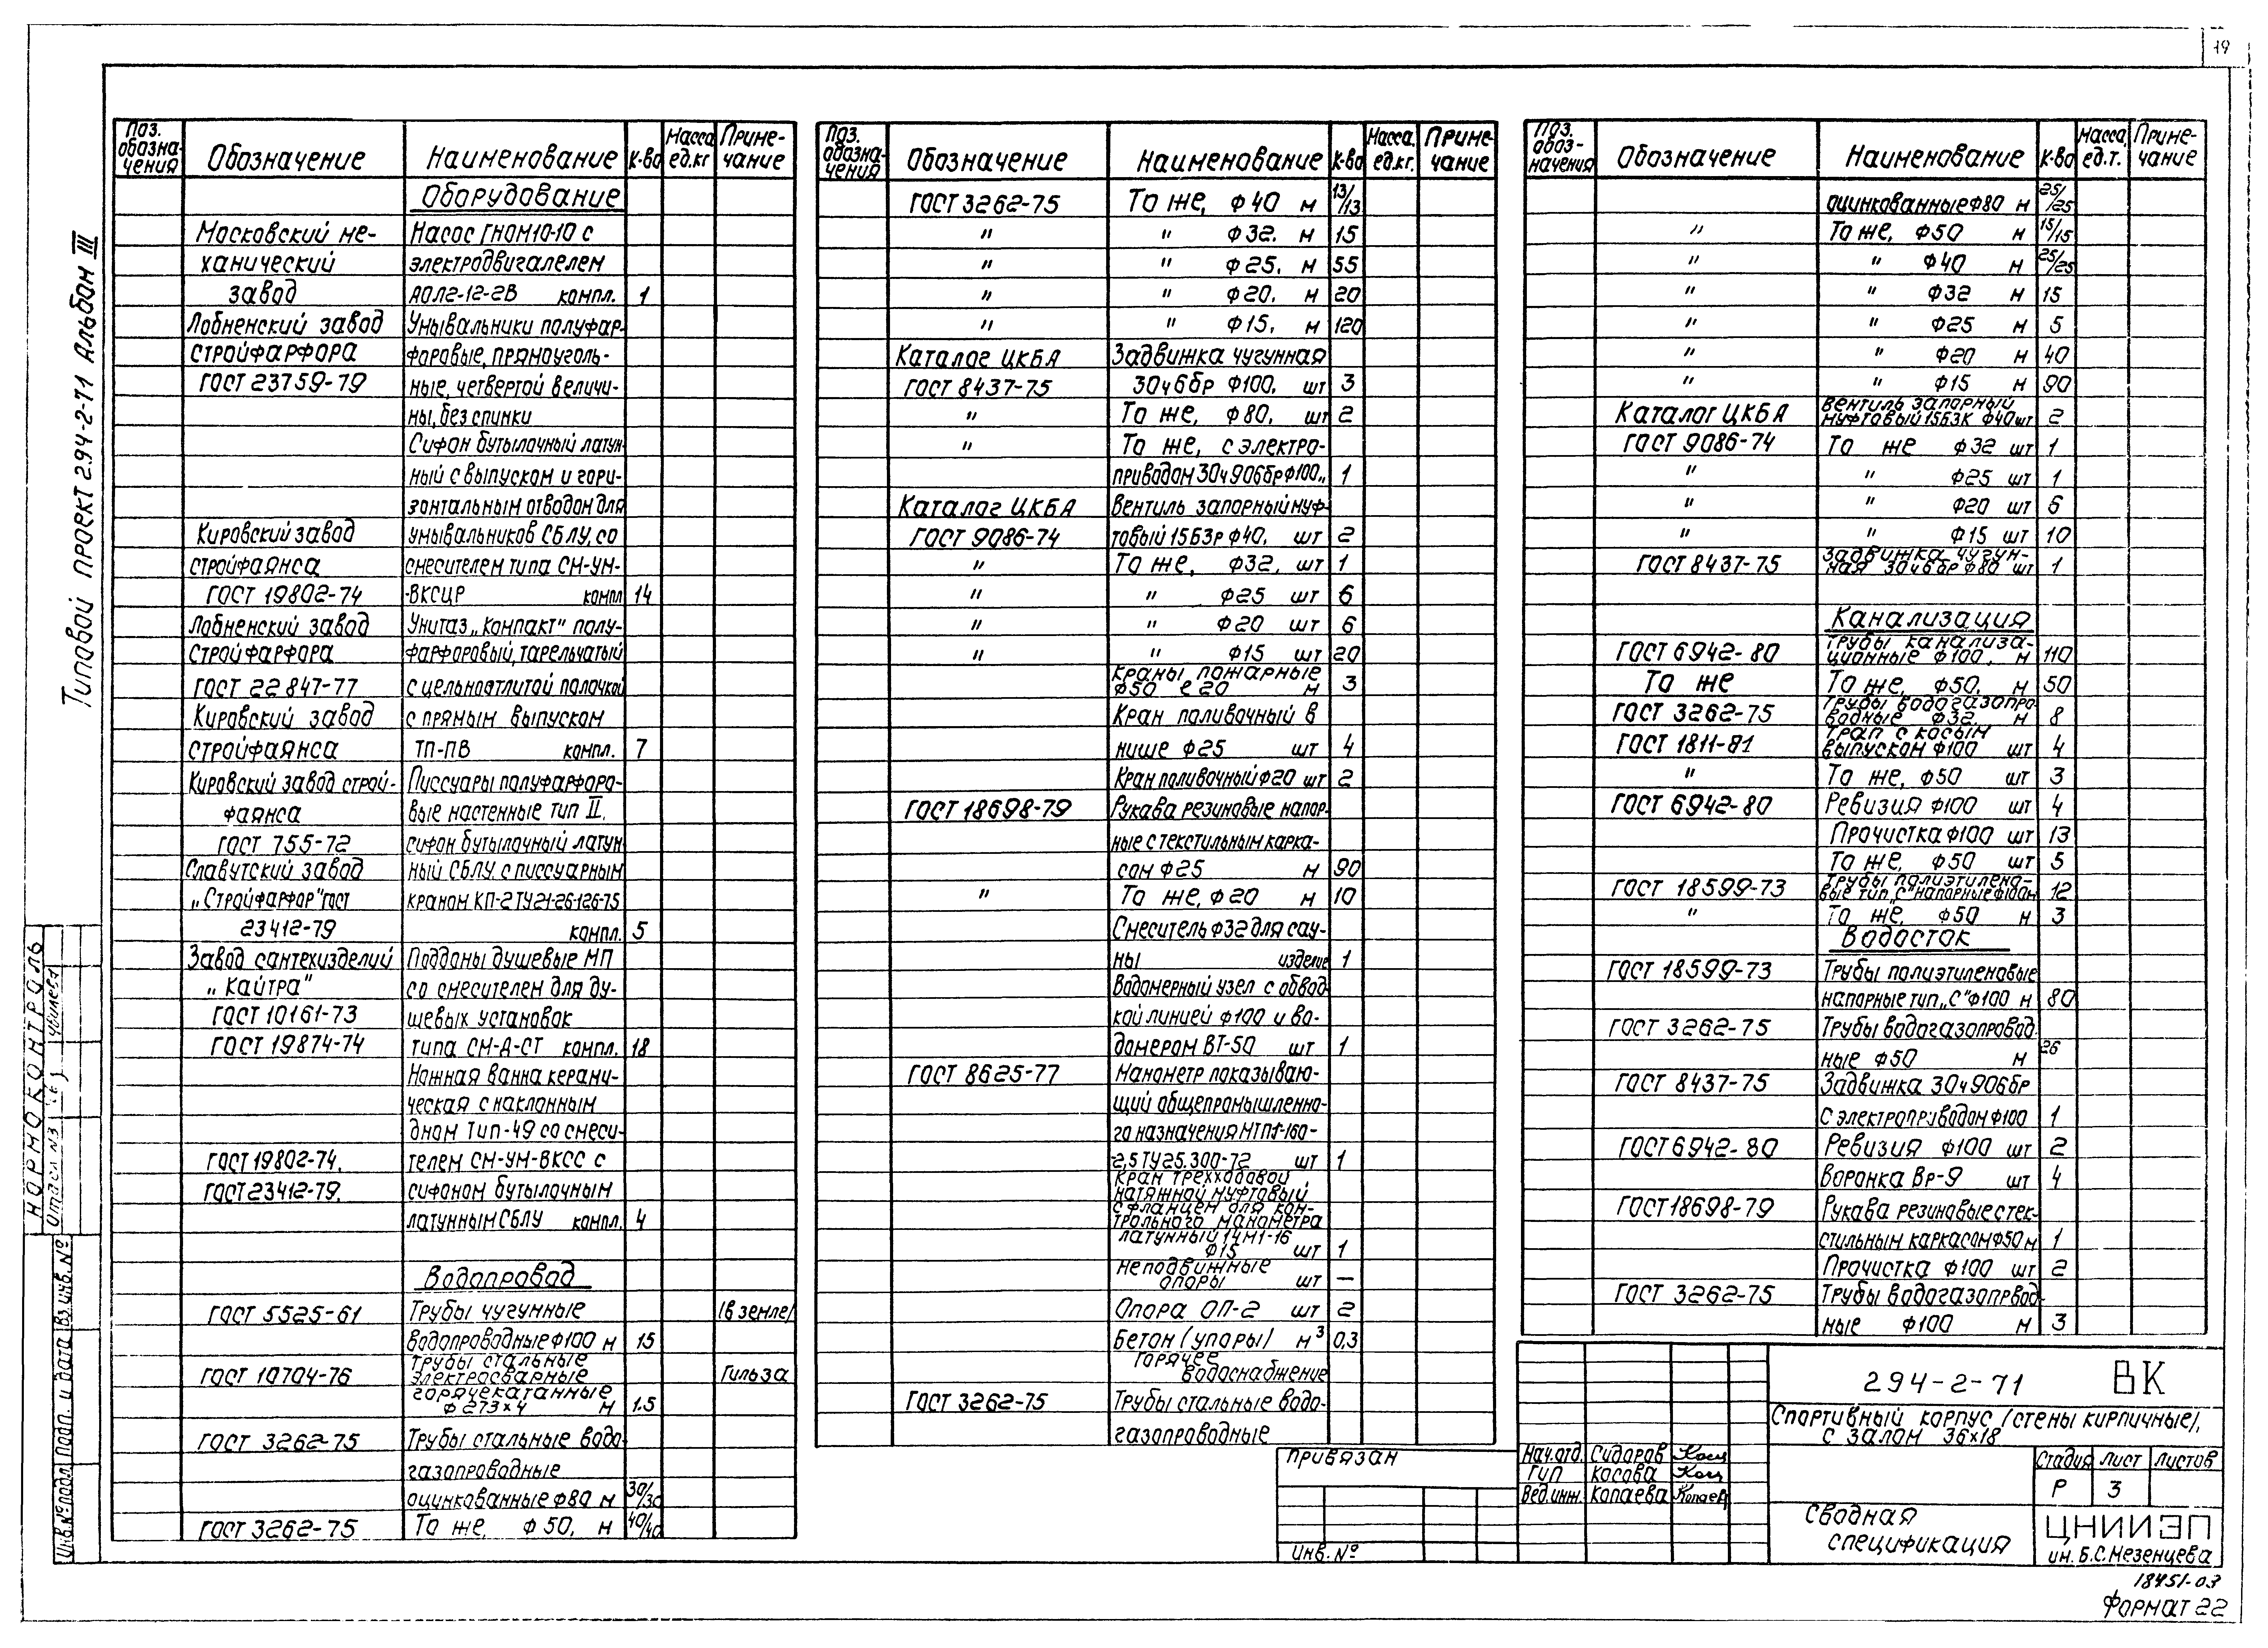 19
Типовой проект 294-2-71 Альбом III
Поз. обозна-чения Обозначение Наименование К-во Масса ед.кг Приме-чание
Оборудование
Московский ме- Насос ГНОМ10-10 с
ханический электродвигалелем
завод АОЛ2-12-2В компл. 1
Лобненский завод Умывальники полуфар-
стройфарфора форовые, прямоуголь-
ГОСТ 23759-79 ные, четвертой величи-
ны, без спинки
Сифон бутылочный латун-
ный с выпуском и гори-
зонтальным отводом для
Кировский завод умывальников СБЛУ, со
стройфаянса смесителем типа СМ-УМ-
ГОСТ 19802-74 -ВКСЦР компл 14
Лобненский завод Унитаз „Компакт" полу-
стройфарфора фарфоровый, тарельчатый
ГОСТ 22847-77 с цельноотлитой полочкой
Кировский завод с прямым выпуском
стройфаянса ТП-ПВ компл. 7
Кировский завод строй- Писсуары полуфарфоро-
фаянса вые настенные тип II,
ГОСТ 755-72 сифон бутылочный латун
Славутский завод ный СБЛУ. с писсуарным
„Стройфарфор" ГОСТ краном КП-2 ТУ21-26-126-75
23412-79 компл. 5
Завод сантехизделий Поддоны душевые МП
„Кайтра" со смесителем для ду-
ГОСТ 10161-73 шевых установок
ГОСТ 19874-74 типа СМ-Д-СТ компл. 18
Ножная ванна керами-
ческая с наклонным
дном Тип-49 со смеси-
ГОСТ 19802-74. телем СМ-УМ-ВКСС с
ГОСТ 23412-79. сифоном бутылочным
латунным СБЛУ компл. 4
Водопровод
ГОСТ 5525-61 Трубы чугунные (в земле)
водопроводные Ф100 м 15
ГОСТ 10704-76 Трубы стальные Гильза
электросварные
горячекатанные
Ф273×4 м 1.5
ГОСТ 3262-75 Трубы стальные водо-
газопроводные
оцинкованные Ф80 м 30/30
ГОСТ 3262-75 То же, Ф50, м 40/40
Поз. обозна-чения Обозначение Наименование К-во Масса, ед.кг. Приме-чание
ГОСТ 3262-75 То же, Ф40 м 13/13
" " Ф32. м 15
" " Ф25, м 55
" " Ф20, м 20
" " Ф15, м 120
Каталог ЦКБА Задвижка чугунная
ГОСТ 8437-75 30ч6бр Ф100, шт 3
" То же, Ф80, шт 2
" То же, с электро-
приводом 30ч906бр Ф100," 1
Каталог ЦКБА Вентиль запорный муф-
ГОСТ 9086-74 товый 15Б3р Ф40, шт 2
" То же, Ф32, шт 1
" " Ф25 шт 6
" " Ф20 шт 6
" " Ф15 шт 20
Краны пожарные
Ф50 ℓ 20 м 3
Кран поливочный в
нише Ф25 шт 4
Кран поливочный Ф20 шт 2
ГОСТ 18698-79 Рукава резиновые напор-
ные с текстильным карка-
сом Ф25 м 90
" То же, Ф20 м 10
Смеситель Ф32 для сау-
ны изделие 1
Водомерный узел с обвод
кой линией Ф100 и во-
домером ВТ-50 шт 1
ГОСТ 8625-77 Манометр показываю-
щий общепромышленно-
го назначения МТП1-160-
-2,5 ТУ25.300-72 шт 1
Кран трехходовой
натяжной муфтовый
с фланцем для кон-
трольного манометра
латунный 14М1-16
Ф15 шт 1
Неподвижные
опоры шт —
Опора ОП-2 шт 2
Бетон (упоры) м³ 0,3
Горячее
водоснабжение
ГОСТ 3262-75 Трубы стальные водо-
газопроводные
Поз. обоз-начения Обозначение Наименование К-во Масса, ед.т. Приме-чание
оцинкованные Ф80 м 25/25
" То же, Ф50 м 15/15
" " Ф40 м 25/25
" " Ф32 м 15
" " Ф25 м 5
" " Ф20 м 40
" " Ф15 м 90
Каталог ЦКБА Вентиль запорный
муфтовый 15Б3к Ф40 шт 2
ГОСТ 9086-74 То же Ф32 шт 1
" " Ф25 шт 1
" " Ф20 шт 6
" " Ф15 шт 10
ГОСТ 8437-75 Задвижка чугун-
ная 30ч6бр Ф80 шт 1
Канализация
ГОСТ 6942-80 Трубы канализа-
ционные Ф100, м 110
То же То же, Ф50, м 50
ГОСТ 3262-75 Трубы водогазопро-
водные Ф32, м 8
ГОСТ 1811-81 Трап с косым
выпуском Ф100 шт 4
" То же, Ф50 шт 3
ГОСТ 6942-80 Ревизия Ф100 шт 4
Прочистка Ф100 шт 13
То же, Ф50 шт 5
ГОСТ 18599-73 Трубы полиэтилено-
вые тип „С" напорные Ф100м 12
" То же, Ф50 м 3
Водосток
ГОСТ 18599-73 Трубы полиэтиленовые
напорные тип „С" Ф100 м 80
ГОСТ 3262-75 Трубы водогазопровод
ные Ф50 м 26
ГОСТ 8437-75 Задвижка 30ч906бр
с электроприводом Ф100 1
ГОСТ 6942-80 Ревизия Ф100 шт 2
Воронка Вр-9 шт 4
ГОСТ 18698-79 Рукава резиновые стек-
стильным каркасом Ф50 м 1
Прочистка Ф100 шт 2
ГОСТ 3262-75 Трубы водогазопровод-
ные Ф100 м 3
НОРМОКОНТРОЛЬ
Отдел №3
Инв.№подл. Подп. и дата Вз.инв.№
Привязан
Инв.№
Нач.отд. Сидоров
ГИП Косова
Вед.инж. Копаева
294-2-71 ВК
Спортивный корпус (стены кирпичные),
с залом 36×18
Стадия Лист Листов
Р 3
Сводная
спецификация
ЦНИИЭП
им. Б.С.Мезенцева
18451-03
Формат 22